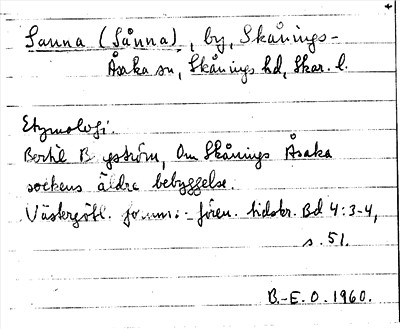 Sanna (Sånna), by, Skånings-
Åsaka sn, Skånings hd, Skar. l.
Etymologi.
Bertil B ygström, Om Skånings Åsaka
sockens äldre bebyggelse.
Västergötl. fornmi:- fören. tidskr. Bd 4:3-4,
s. 51.
B.-E. O. 1960.